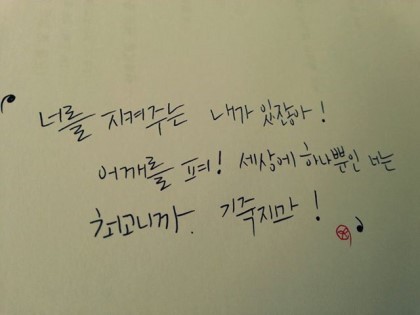 너를 지켜주는 내가 있잖아!
어깨를 펴! 세상에 하나뿐인 너는
최고니까. 기죽지마!